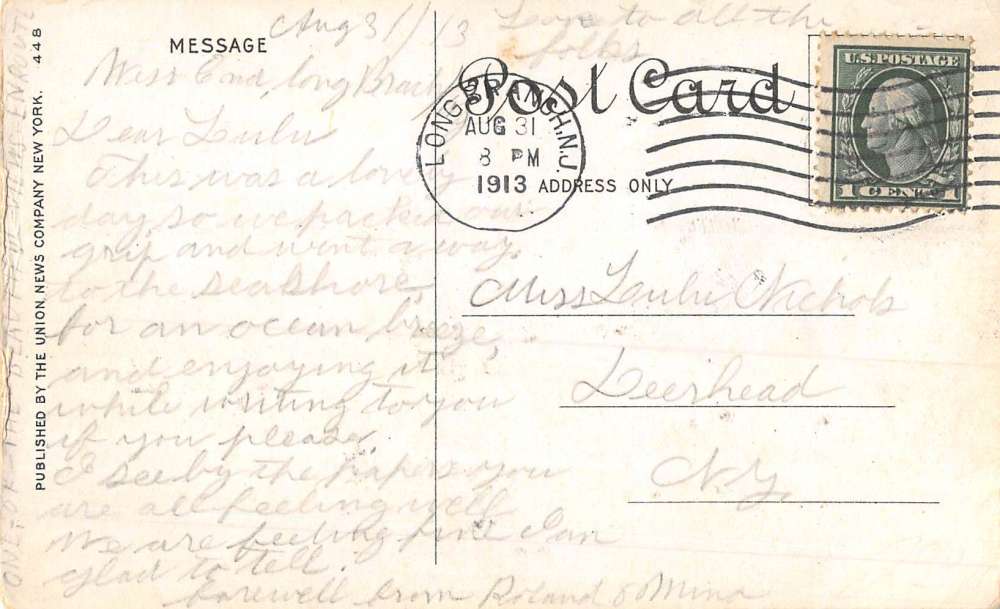 MESSAGE
Aug 31/13
Love to all the
folks
West End, long Branch
Dear Lulu
This was a lovely
day, so we packed our
grip and went away
to the seashore,
for an ocean breze,
and enjoying it
while writing to you
if you please.
I see by the papers you
are all feeling well
We are feeling fine I am
glad to tell.
Farewell from Roland & Mina
Post Card
LONG BRANCH, N.J.
AUG 31
8 PM
1913
ADDRESS ONLY
U.S. POSTAGE
1 CENT 1
Miss Lulu Nichols
Deerhead
N.Y.
PUBLISHED BY THE UNION NEWS COMPANY NEW YORK. 448
ONE OF THE BEAUTIFUL VIEWS ENROUTE